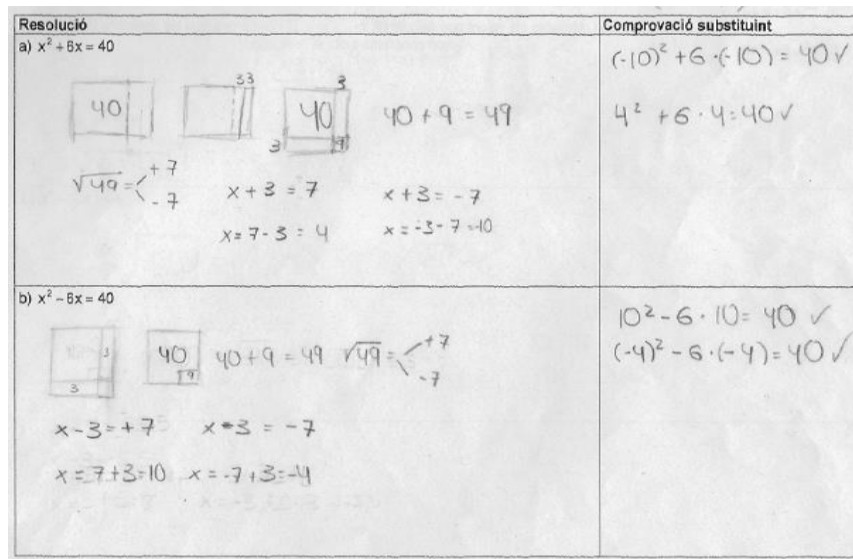 Resolució
Comprovació substituint
a) x² + 6x = 40
40
3 3
3
40
3
9
40 + 9 = 49
√49 = +7
-7
x + 3 = 7
x + 3 = -7
x = 7 - 3 = 4
x = -3 - 7 = -10
(-10)² + 6 · (-10) = 40 ✓
4² + 6 · 4 = 40 ✓
b) x² - 6x = 40
3
3
40
9
40 + 9 = 49
√49 = +7
-7
x - 3 = +7
x - 3 = -7
x = 7 + 3 = 10
x = -7 + 3 = -4
10² - 6 · 10 = 40 ✓
(-4)² - 6 · (-4) = 40 ✓